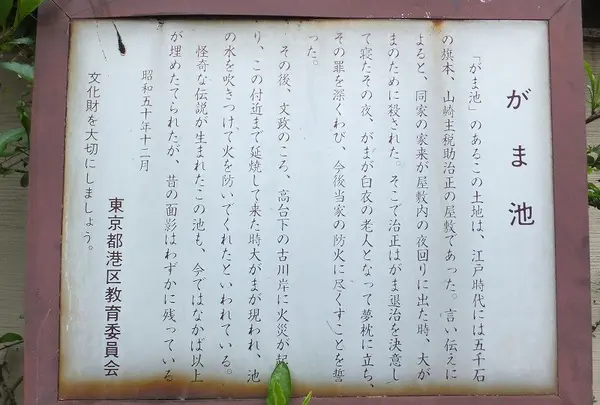 がま池
「がま池」のあるこの土地は、江戸時代には五千石
の旗本、山崎主税助治正の屋敷であった。言い伝えに
よると、同家の家来が屋敷内の夜回りに出た時、大が
まのために殺された。そこで治正はがま退治を決意し
て寝たその夜、がまが白衣の老人となって夢枕に立ち、
その罪を深くわび、今後当家の防火に尽くすことを誓
った。
その後、文政のころ、高台下の古川岸に火災が起
り、この付近まで延焼して来た時大がまが現われ、池
の水を吹きつけて火を防いでくれたといわれている。
怪奇な伝説が生まれたこの池も、今ではなかば以上
が埋めたてられたが、昔の面影はわずかに残っている
昭和五十年十二月
文化財を大切にしましょう。
東京都港区教育委員会